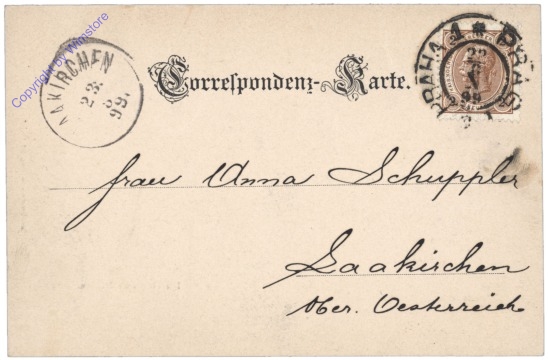 Copyright by Winstore
AAKIRCHEN
23.
8
99.
Correspondenz-Karte.
PRAHA 1 * PRAG 1
22
99
Frau Anna Schuppler
Laakirchen
Ober. Oesterreich